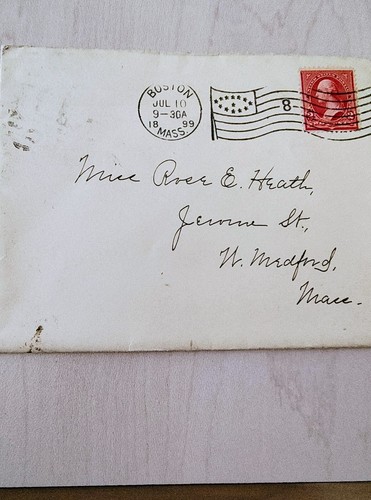 BOSTON
JUL 10
9-30A
18 99
MASS.
8
Miss Rose E. Heath,
Jerome St.,
W. Medford,
Mass.